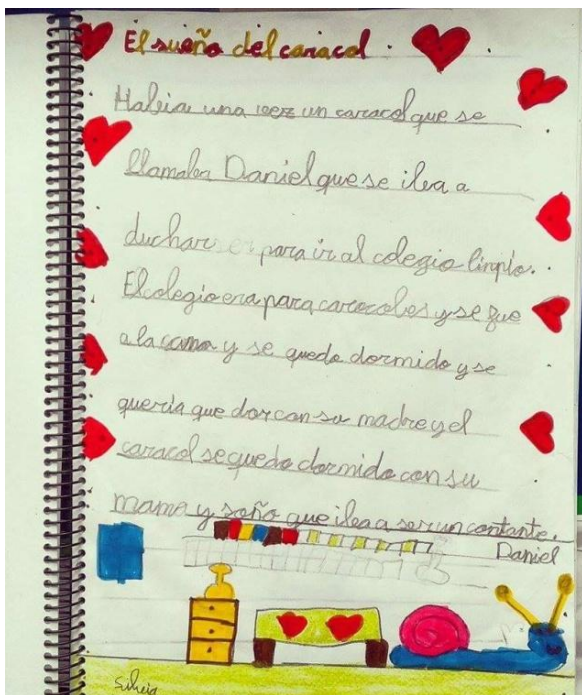 El sueño del caracol.
Habia una vez un caracol que se
llamaba Daniel que se iba a
ducharse para ir al colegio limpio.
El colegio era para caracoles y se fue
a la cama y se quedo dormido y se
queria que dar con su madre y el
caracol se quedo dormido con su
mama y soño que iba a ser un cantante.
Daniel
Silvia